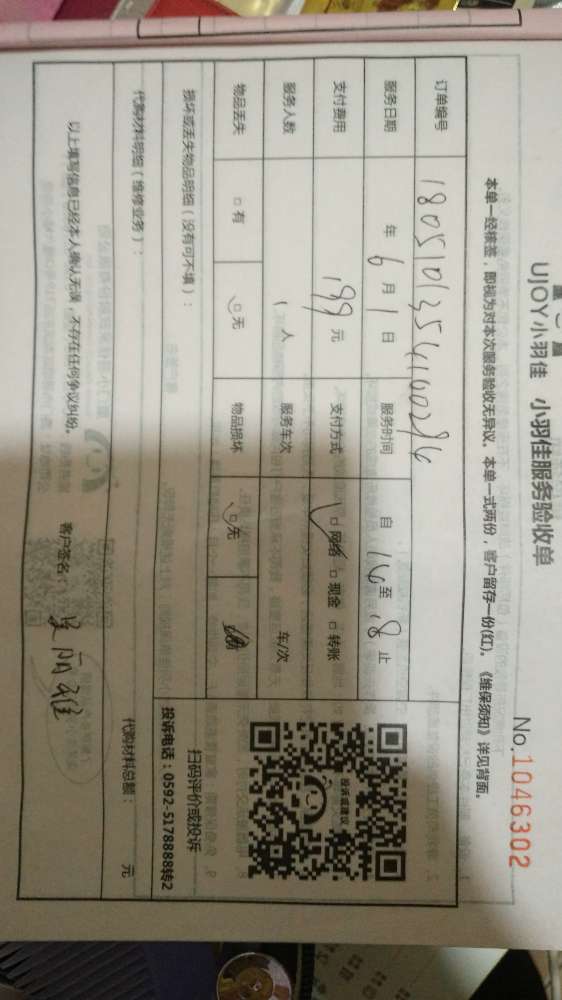 UJOY小羽佳 小羽佳服务验收单
No.1046302
本单一经核签，即视为对本次服务验收无异议。本单一式两份，客户留存一份(红)。《维保须知》详见背面。
订单编号 180510135414100286
服务日期 年 6 月 1 日 服务时间 自 16 至 18 止
支付费用 199 元 支付方式 □ 网络 □ 现金 □ 转账
服务人数 1 人 服务车次 车/次
物品丢失 □ 有 □ 无 物品损坏 □ 无
损坏或丢失物品明细（没有可不填）：
投诉或建议
扫码评价或投诉
投诉电话：0592-5178888转2
代购材料明细（维修业务）： 代购材料总额： 元
以上填写信息已经本人确认无误，不存在任何争议纠纷。 客户签名：